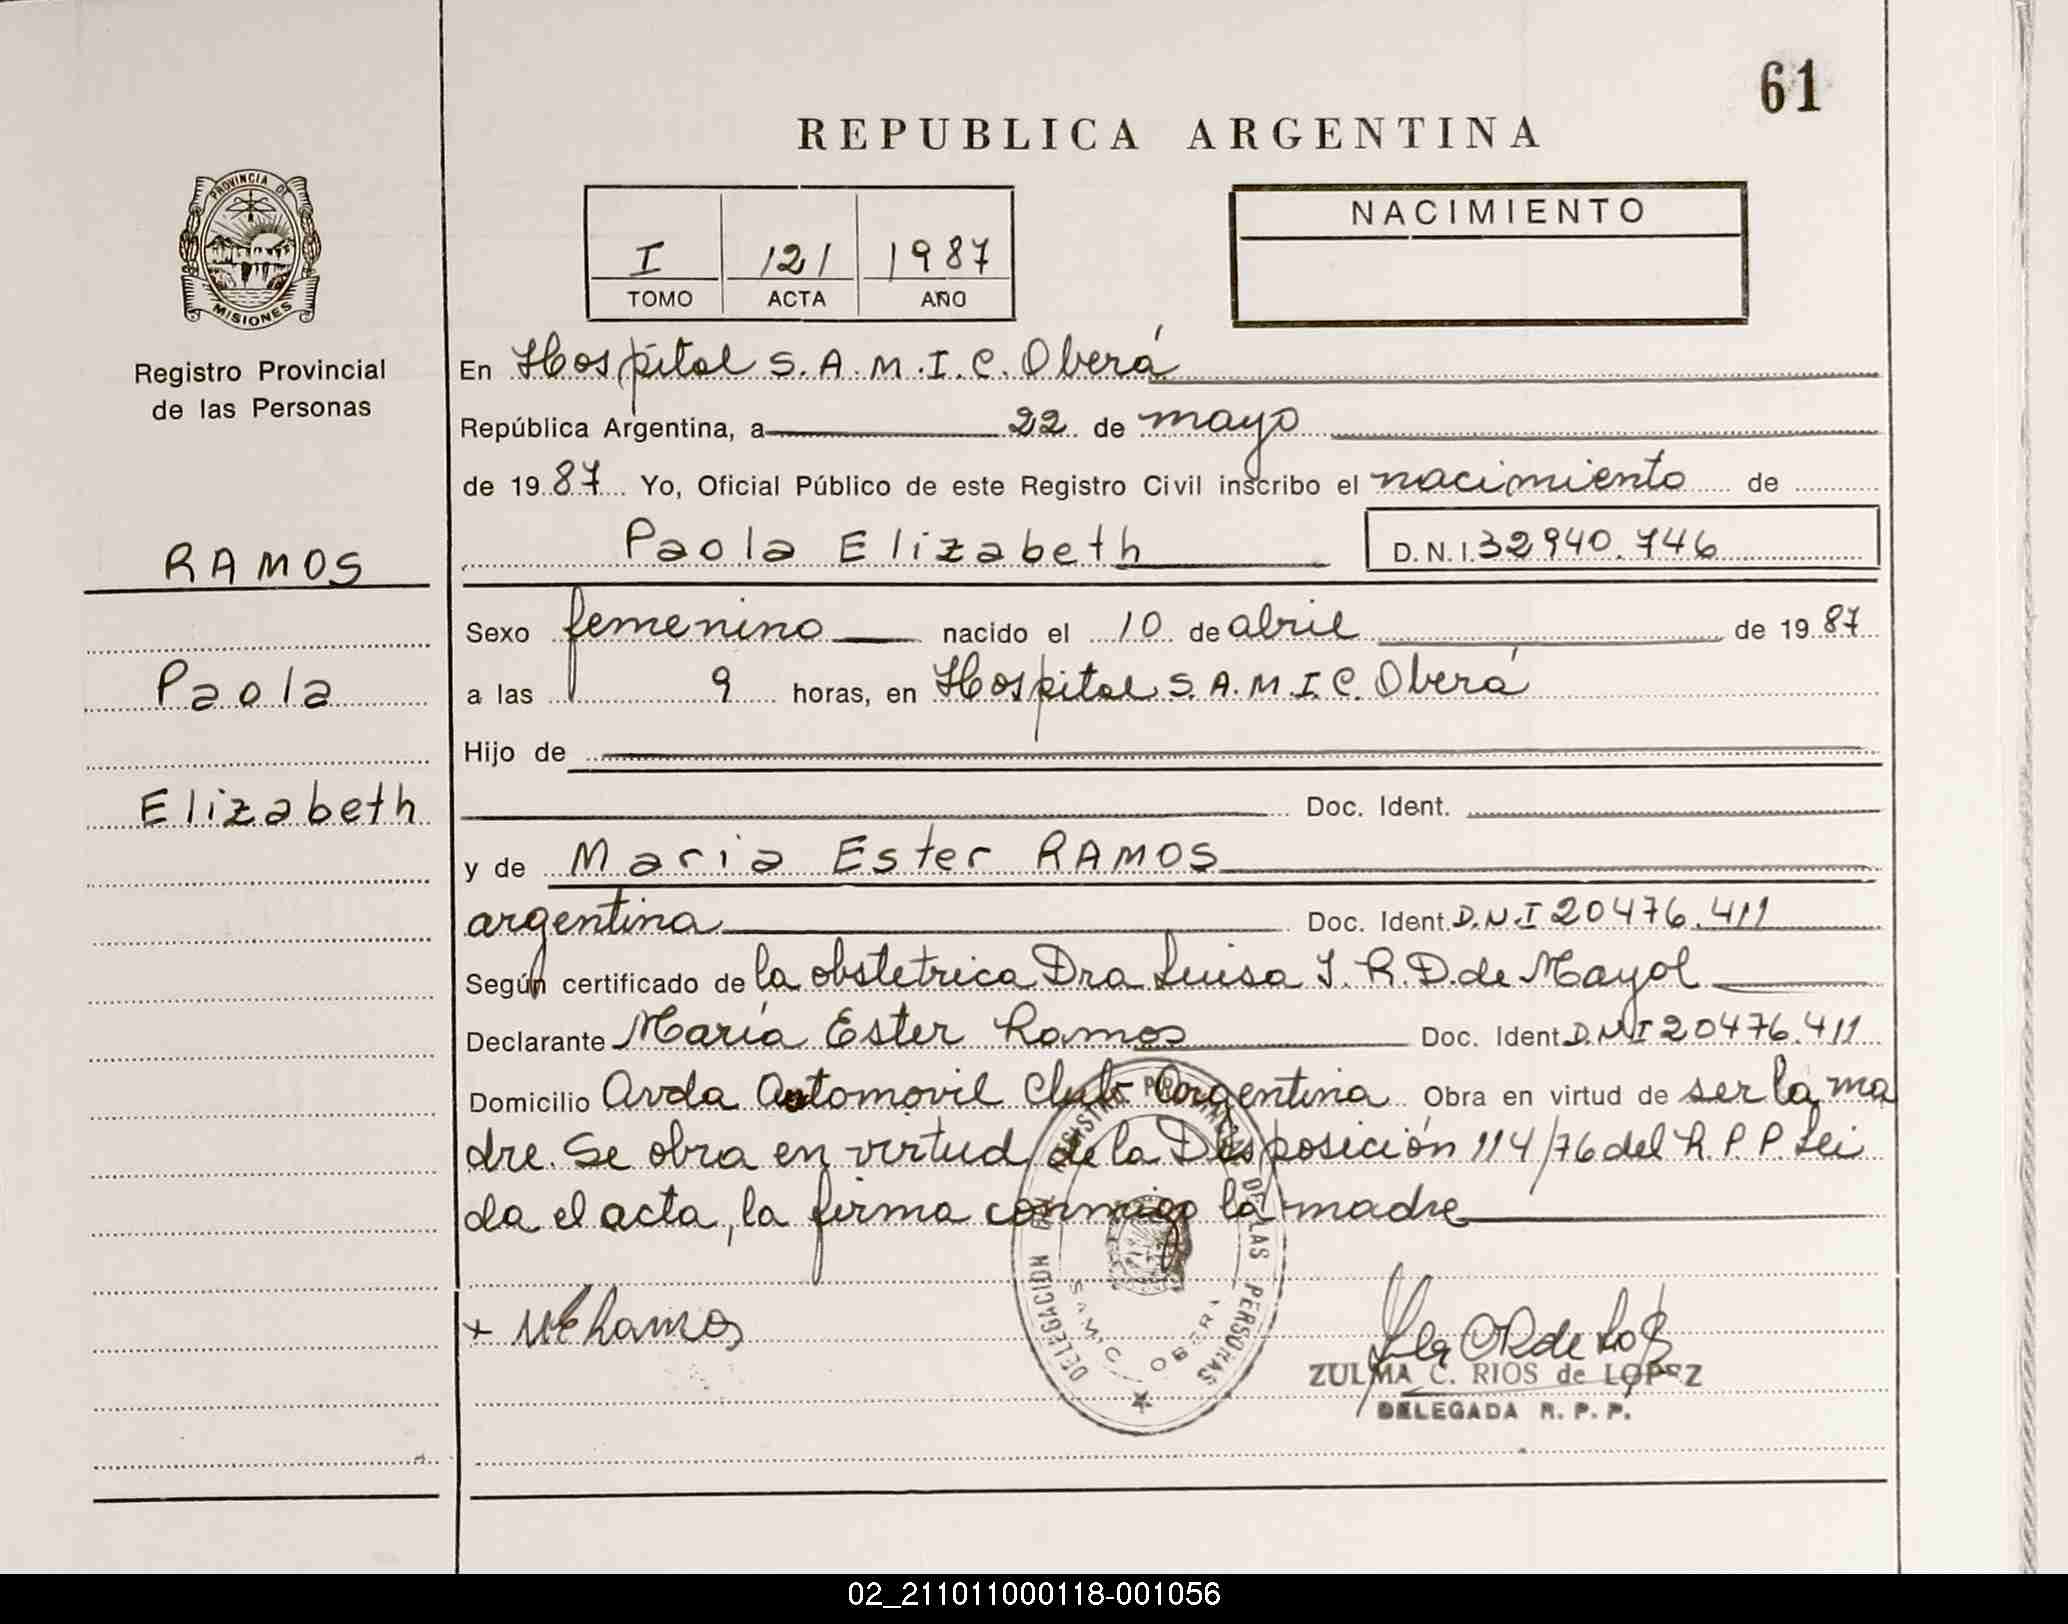 61
REPUBLICA ARGENTINA
PROVINCIA DE
MISIONES
Registro Provincial
de las Personas
I 121 1987
TOMO ACTA AÑO
NACIMIENTO
En Hospital S.A.M.I.C. Oberá
República Argentina, a 22 de mayo
de 1987 Yo, Oficial Público de este Registro Civil inscribo el nacimiento de
Paola Elizabeth D.N.I. 32940.746
RAMOS
Paola
Elizabeth
Sexo femenino nacido el 10 de abril de 1987
a las 9 horas, en Hospital S.A.M.I.C. Oberá
Hijo de
Doc. Ident.
y de Maria Ester RAMOS
argentina Doc. Ident. D.N.I 20476.411
Según certificado de la obstetrica Dra Luisa J. R. D. de Mayol
Declarante María Ester Ramos Doc. Ident. D.N.I 20476.411
Domicilio Avda Automovil Club Argentina Obra en virtud de ser la ma
dre. Se obra en virtud de la Disposición 114/76 del R.P.P. Lei
da el acta, la firma conmigo la madre
DELEGACION DEL REGISTRO PROVINCIAL DE LAS PERSONAS
SAMIC OBERA
+ MERamos
ZULMA C. RIOS de LOPEZ
DELEGADA R. P. P.
02_211011000118-001056